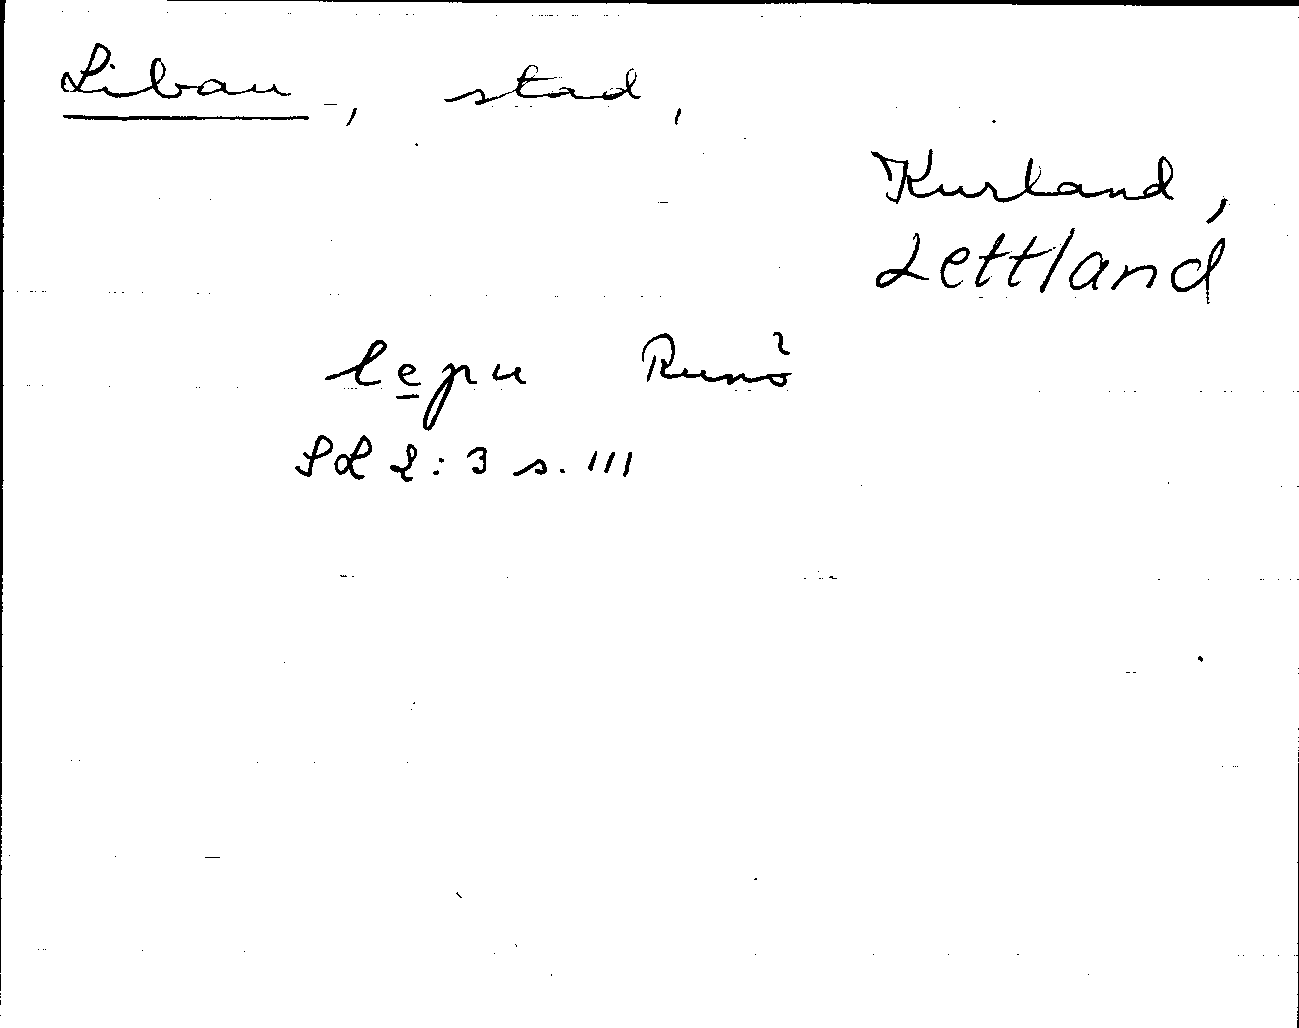 Libau, stad,
Kurland,
Lettland
lepu Runö
SL 2:3 s. 111